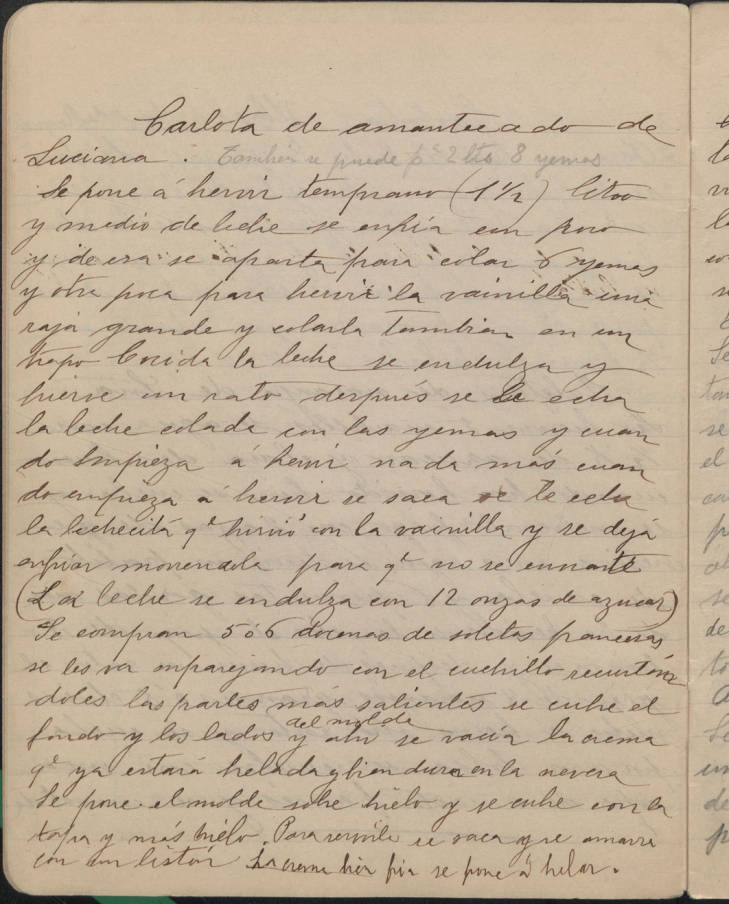 Carlota de amantecado de
Luciana. También se puede pª 2 lts 8 yemas
Se pone á hervir temprano (1 1/2) litro
y medio de leche se enfría un poco
y de esa se aparta para colar 6 yemas
y otra poca para hervir la vainilla una
raja grande y colarla tambien en un
trapo Cocida la leche se endulza y
hierve un rato después se le echa
la leche colada con las yemas y cuan
do empieza á hervir nada más cuan
do empieza á hervir se saca se le echa
la lechecita qᵉ hirvió con la vainilla y se deja
enfriar moviendola para qᵉ no se ennate
(La leche se endulza con 12 onzas de azucar)
Se compran 5 ó 6 docenas de soletas francesas
se les va emparejando con el cuchillo recortán
doles las partes más salientes se cubre el
fondo y los lados del molde y ahi se vacia la crema
qᵉ ya estará helada y bien dura en la nevera
Se pone el molde sobre hielo y se cubre con la
tapa y más hielo. Para servirla se saca y se amarra
con un listón La crema bien fria se pone á helar.